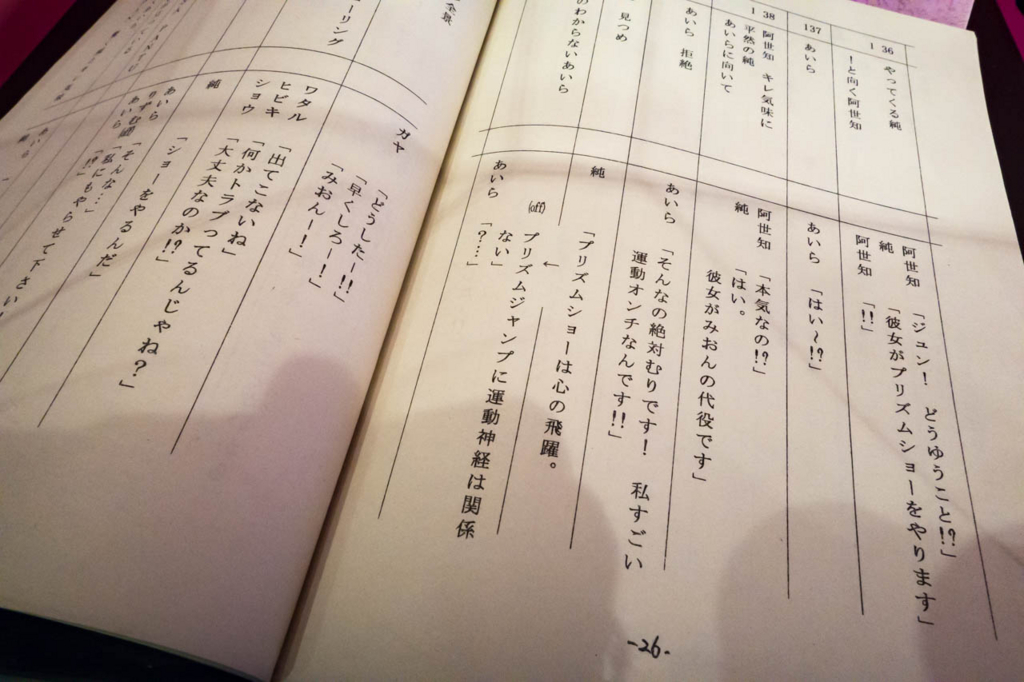 136
やってくる純
!と向く阿世知
137
あいら
138
阿世知 キレ気味に
平然の純
あいらに向いて
あいら 拒絶
見つめ
のわからないあいら
阿世知 「ジュン! どうゆうこと!?」
純 「彼女がプリズムショーをやります」
阿世知 「!!」
あいら 「はい〜!?」
阿世知 「本気なの!?」
純 「はい。
彼女がみおんの代役です」
あいら 「そんなの絶対むりです! 私すごい
運動オンチなんです!!」
純 「プリズムショーは心の飛躍。
(off) ←
プリズムジャンプに運動神経は関係
ない」
あいら 「?…」
-26-
全景
ーリング
ガヤ 「どうしたー!!」
「早くしろー!」
「みおんー!」
ワタル 「出てこないね」
ヒビキ 「何かトラブってるんじゃね?」
ショウ 「大丈夫なのか!?」
純 「ショーをやるんだ」
あいら 「そんな…」
りずむ 「私にもやらせて下さい!
あいら 「!?」
あいら